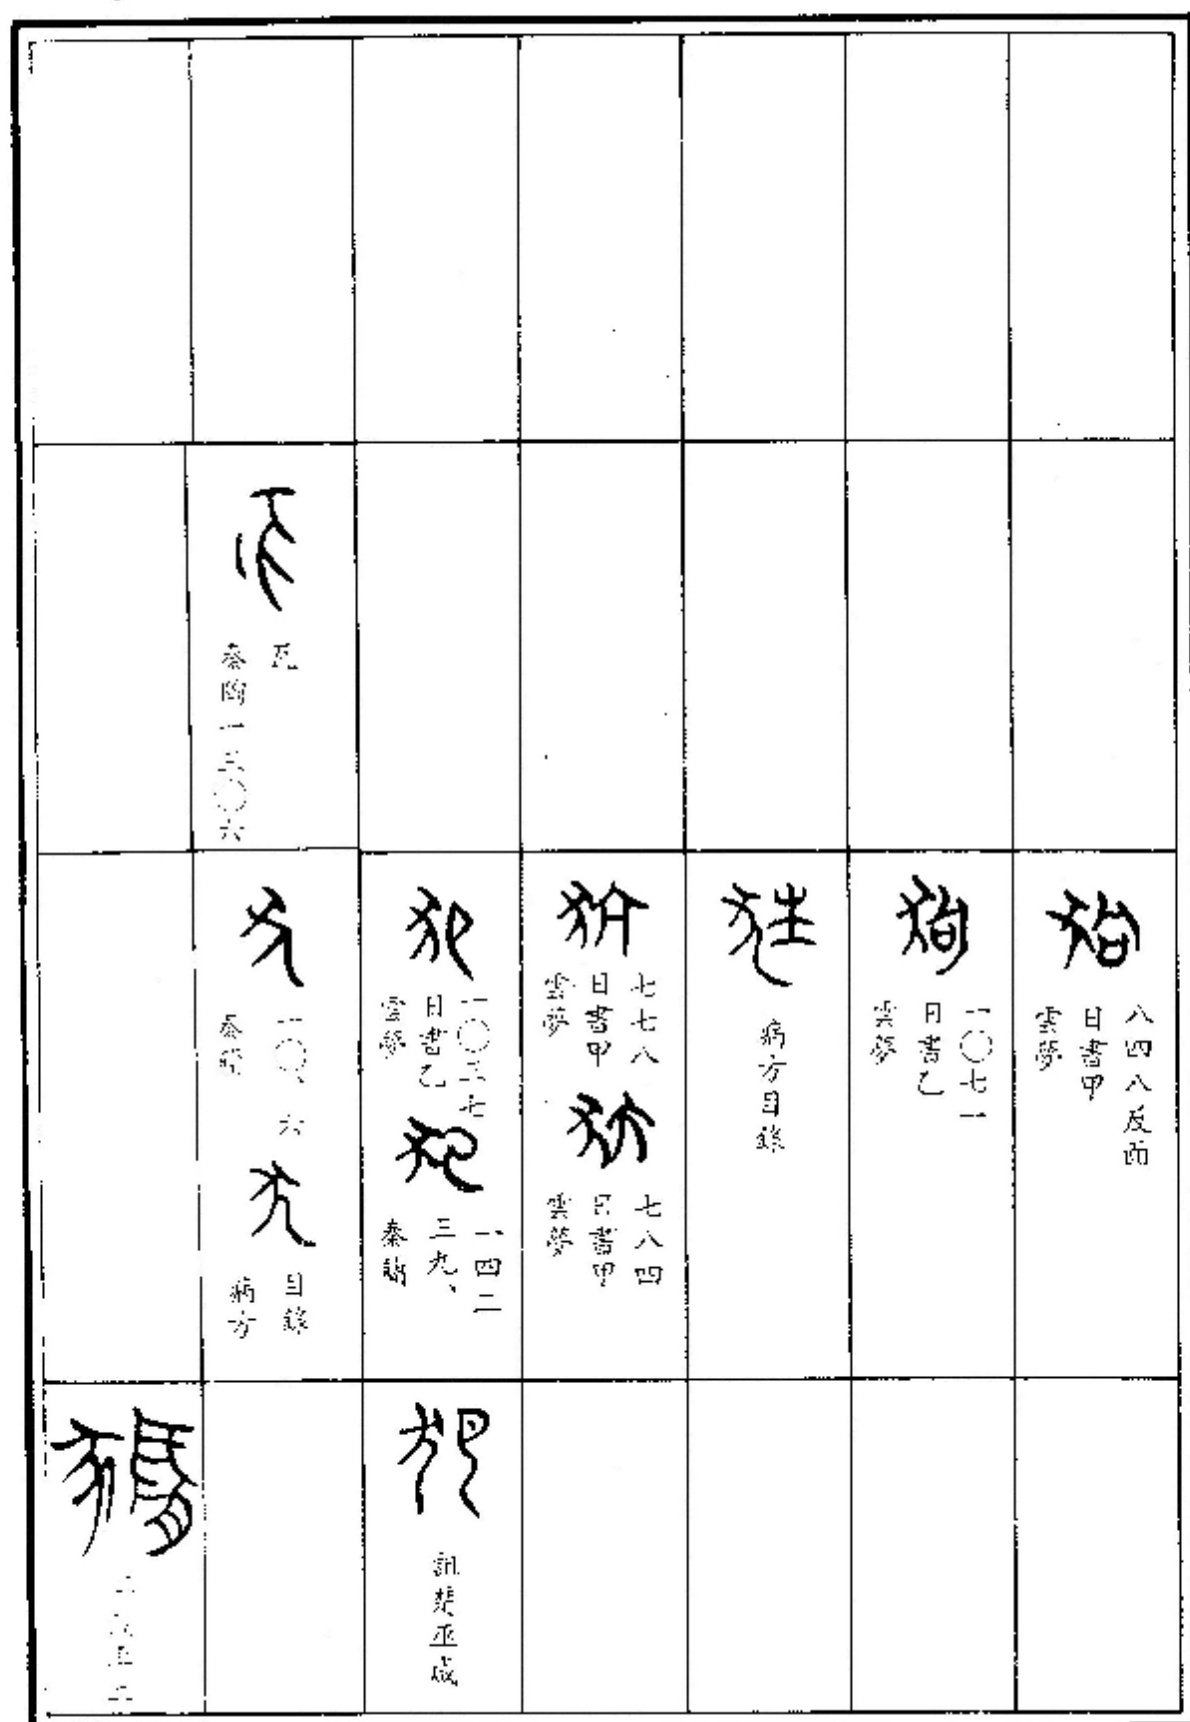 八四八反面
日書甲
雲夢
一〇七一
日書乙
雲夢
病方目錄
七七八
日書甲
雲夢
七八四
日書甲
雲夢
犯
一〇三七
日書乙
雲夢
犯
一四二
三九、
秦簡
犯
詛楚巫咸
瓦
秦陶一三〇六
犬
一〇、六
秦簡
犬
目錄
病方